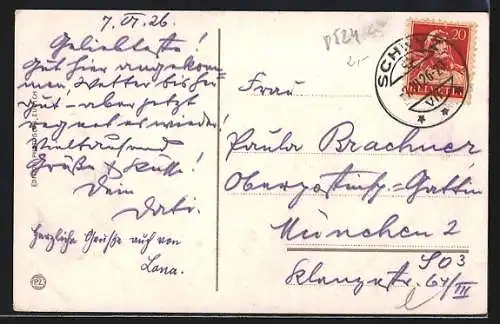 7. VI. 26.
Geliebteste!
Gut hier angekom-
men, Wetter bis her
gut - aber jetzt
regnet es wieder!
Vieltausend
Grüße & Küsse!
Dein
Dati.
Herzliche Grüsse auch von
Lona.
Frau
Paula Brachner
Oberpostinsp.=Gattin
München 2
SO3
Klenzestr. 64/III
20
HELVETIA
SCHW